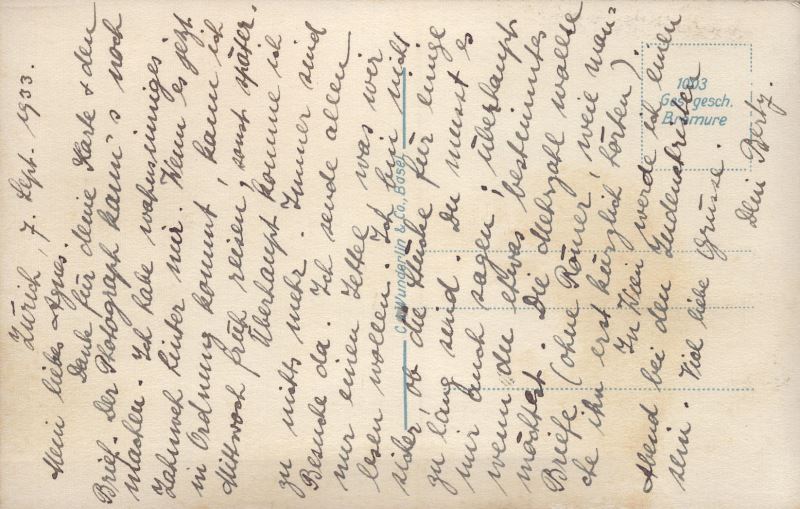 Zürich, 7. Sept. 1933.
Mein liebes Agnes.
Danke für deine Karte + den
Brief. Der Photograph kann's noch
machen. Ich habe wahnsinniges
Zahnweh hinter mir. Wenn es jetzt
in Ordnung kommt, kann ich
Mittwoch früh reisen, sonst später.
Überhaupt komme ich
zu nichts mehr. Immer sind
Besuche da. Ich sende allen
nur einen Zettel was wir
lesen wollen. Ich bin nicht
sicher, ob die Stücke für einige
zu lang sind. Du musst es
mir auch sagen, überhaupt
wenn du etwas bestimmtes
möchtest. Die Mehrzahl wollte
Briefe (ohne Räuber, weil man-
che ihn erst kürzlich hörten)
In Wien werde ich einen
Abend bei den
sein. Viel liebe Grüsse.
Dein Berty.
C. A. Wunderlin & Co., Basel
1003
Ges. gesch.
Bromure